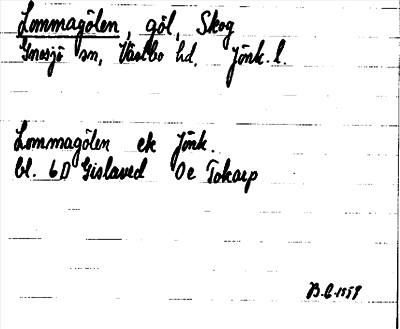 Lommagölen, göl, Skog
Gnosjö sn, Västbo hd. Jönk. l.
Lommagölen ek Jönk.
bl. 6D Gislaved 0e Tokarp
B.E. 1959